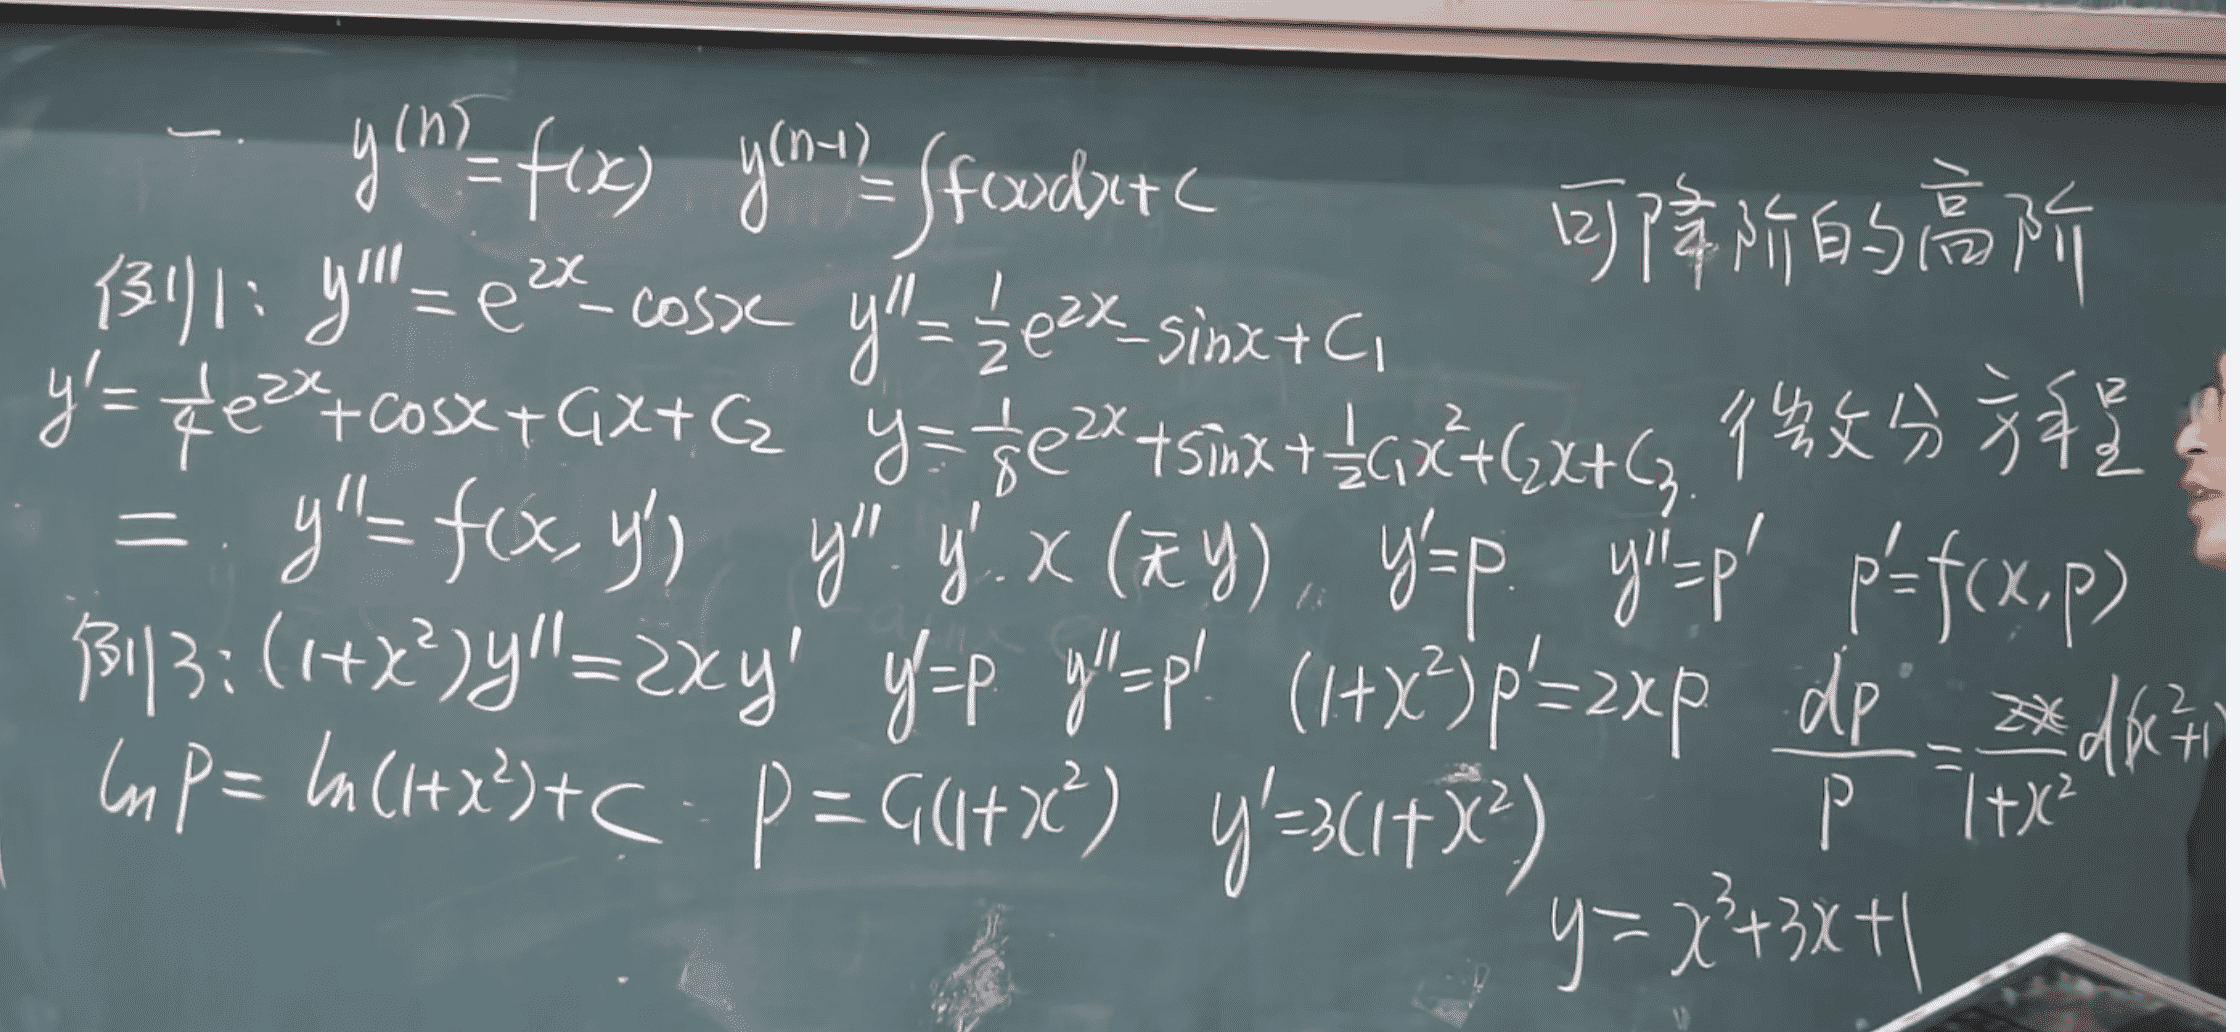 一. y⁽ⁿ⁾=f(x) y⁽ⁿ⁻¹⁾=∫f(x)dx+C
可降阶的高阶
例1: y'''=e²ˣ-cosx y''=½e²ˣ-sinx+C₁
y'=¼e²ˣ+cosx+C₁x+C₂ y=⅛e²ˣ+sinx+½C₁x²+C₂x+C₃.
微分方程
二. y''=f(x, y') y''. y'. x (无y) y'=p. y''=p' p'=f(x,p)
例3: (1+x²)y''=2xy' y'=p. y''=p'. (1+x²)p'=2xp dp/p=1/(1+x²) d(x²+1)
ln p=ln(1+x²)+C. p=C₁(1+x²) y'=3(1+x²)
y=x³+3x+1